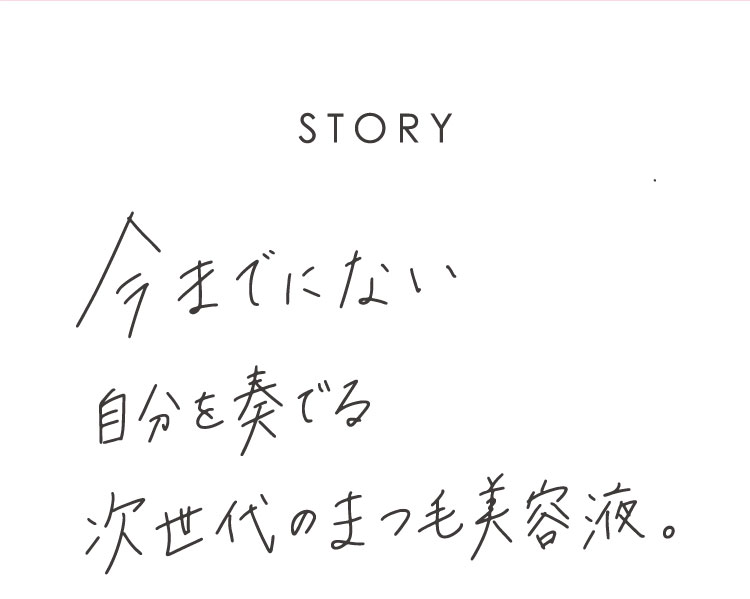 STORY
今までにない
自分を奏でる
次世代のまつ毛美容液。